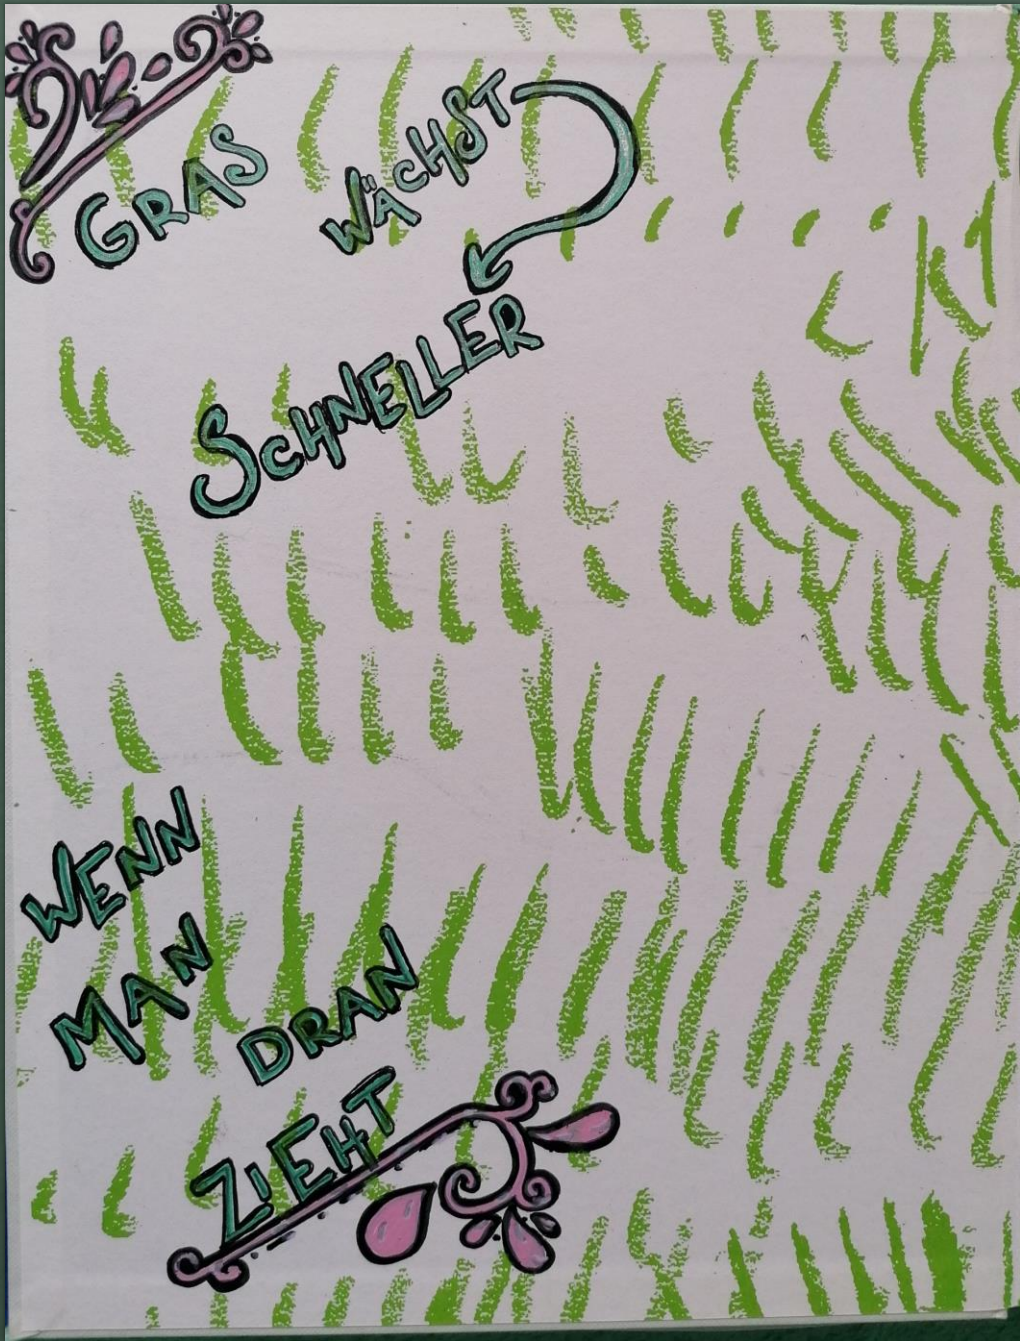 GRAS WÄCHST
SCHNELLER
WENN
MAN
DRAN
ZIEHT